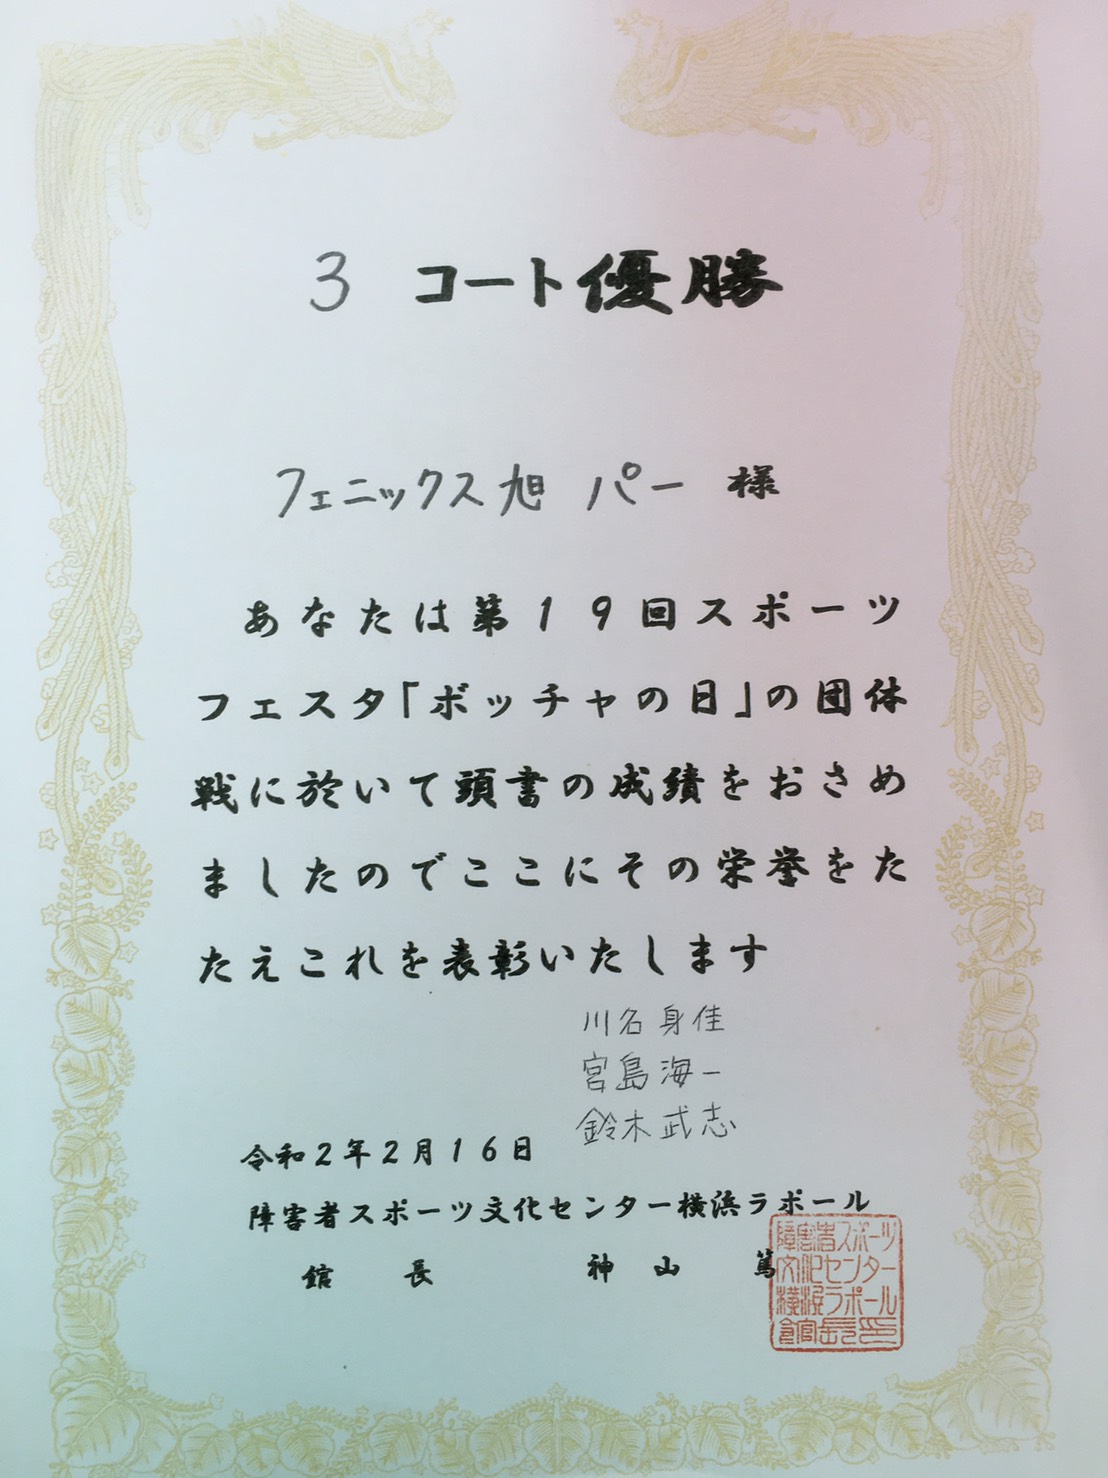 3 コート優勝
フェニックス旭 パー 様
あなたは第１９回スポーツ
フェスタ「ボッチャの日」の団体
戦に於いて頭書の成績をおさめ
ましたのでここにその栄誉をた
たえこれを表彰いたします
川名身佳
宮島海一
鈴木武志
令和２年２月１６日
障害者スポーツ文化センター横浜ラポール
館長 神山 篤
障害者スポーツ
文化センター
横浜ラポール
館長之印